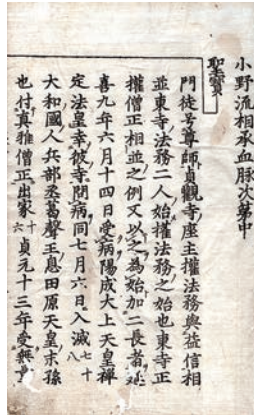 小野流相承血脉次第中
聖寳
門徒号尊師貞觀寺座主權法務與益信相
並東寺法務二人始權法務之始也東寺正
權僧正相並之例又以之為始加二長者延
喜九年六月十四日受病陽成大上天皇禪
定法皇幸彼寺問病同七月六日入滅七十八
大和國人兵部丞葛聲王息田原天皇末孫
也付真雅僧正出家十六貞元十三年受無量